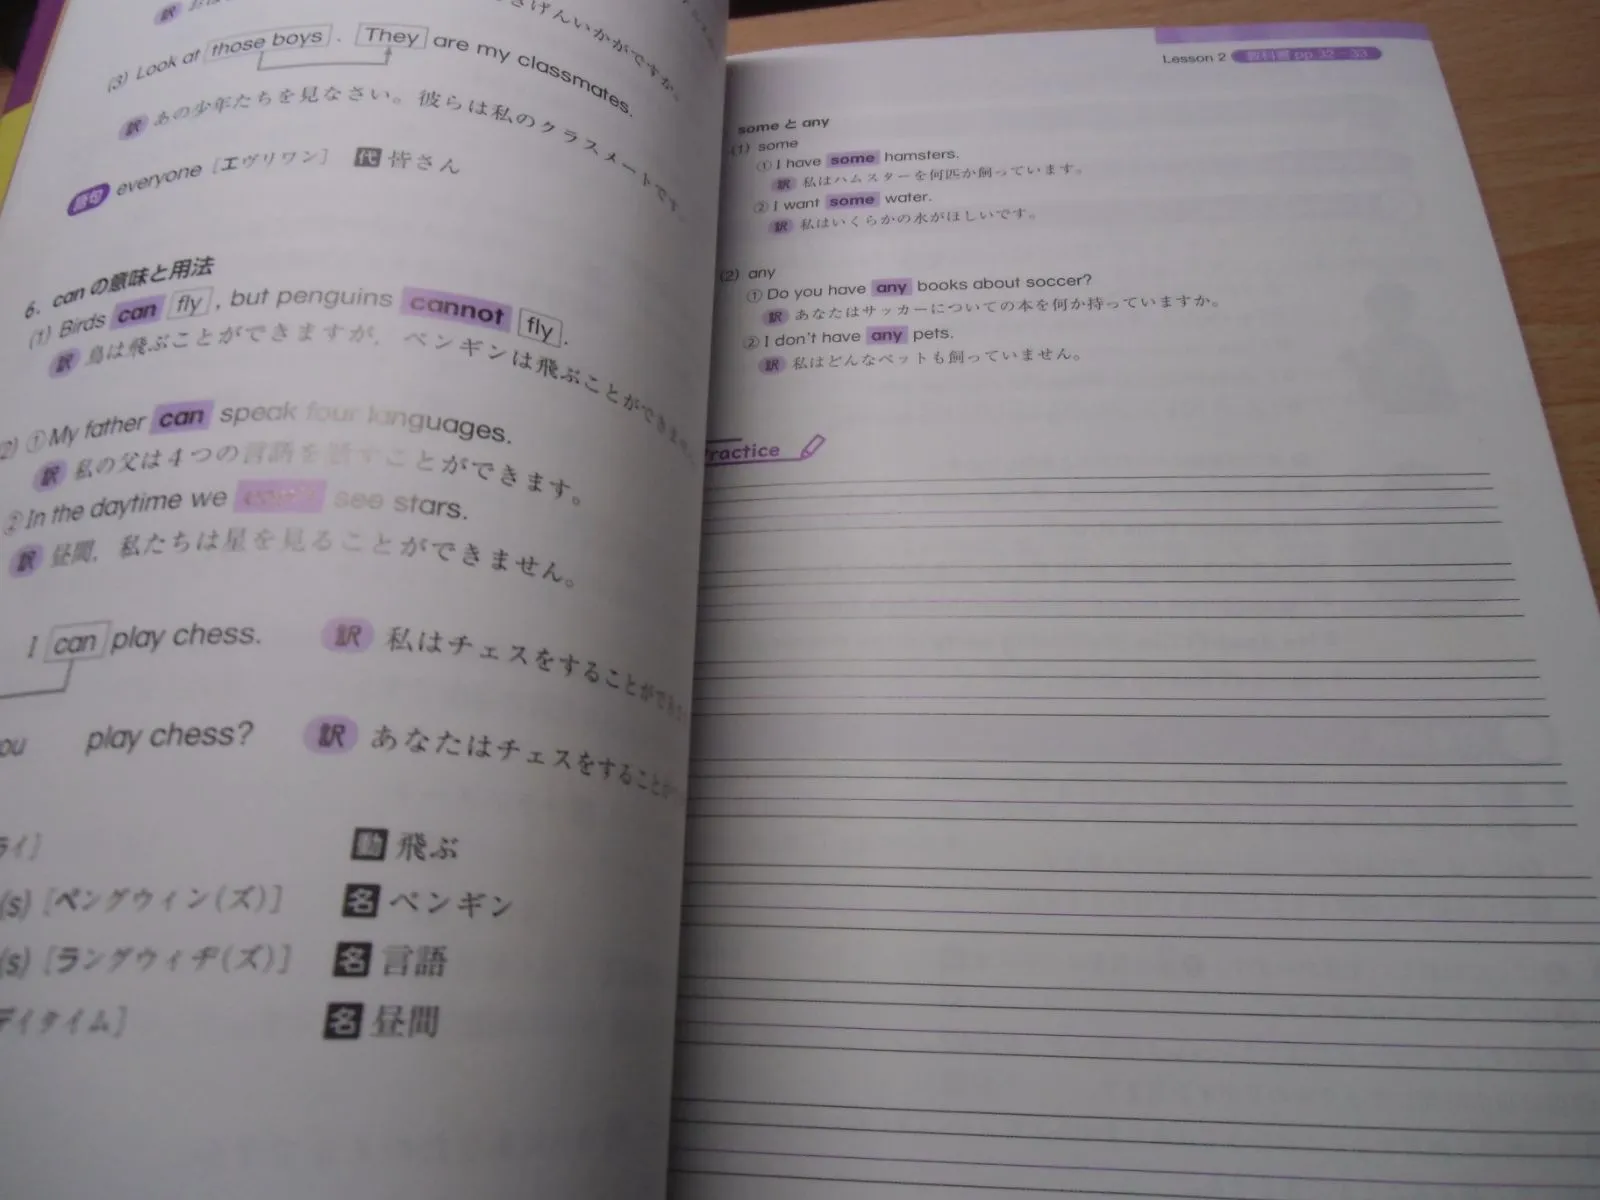 (3) Look at those boys. They are my classmates.
訳 あの少年たちを見なさい。彼らは私のクラスメートです。
語句 everyone [エヴリワン] 代 皆さん
6. canの意味と用法
(1) Birds can fly, but penguins cannot fly.
訳 鳥は飛ぶことができますが,ペンギンは飛ぶことができませ
(2) ①My father can speak four languages.
訳 私の父は4つの言語を話すことができます。
②In the daytime we can't see stars.
訳 昼間,私たちは星を見ることができません。
I can play chess. 訳 私はチェスをすることができ
ou play chess? 訳 あなたはチェスをすることが
ライ] 動 飛ぶ
(s) [ペングウィン(ズ)] 名 ペンギン
(s) [ラングウィヂ(ズ)] 名 言語
デイタイム] 名 昼間
Lesson 2 教科書 pp.32-33
someとany
(1) some
① I have some hamsters.
訳 私はハムスターを何匹か飼っています。
② I want some water.
訳 私はいくらかの水がほしいです。
(2) any
① Do you have any books about soccer?
訳 あなたはサッカーについての本を何か持っていますか。
② I don't have any pets.
訳 私はどんなペットも飼っていません。
ractice